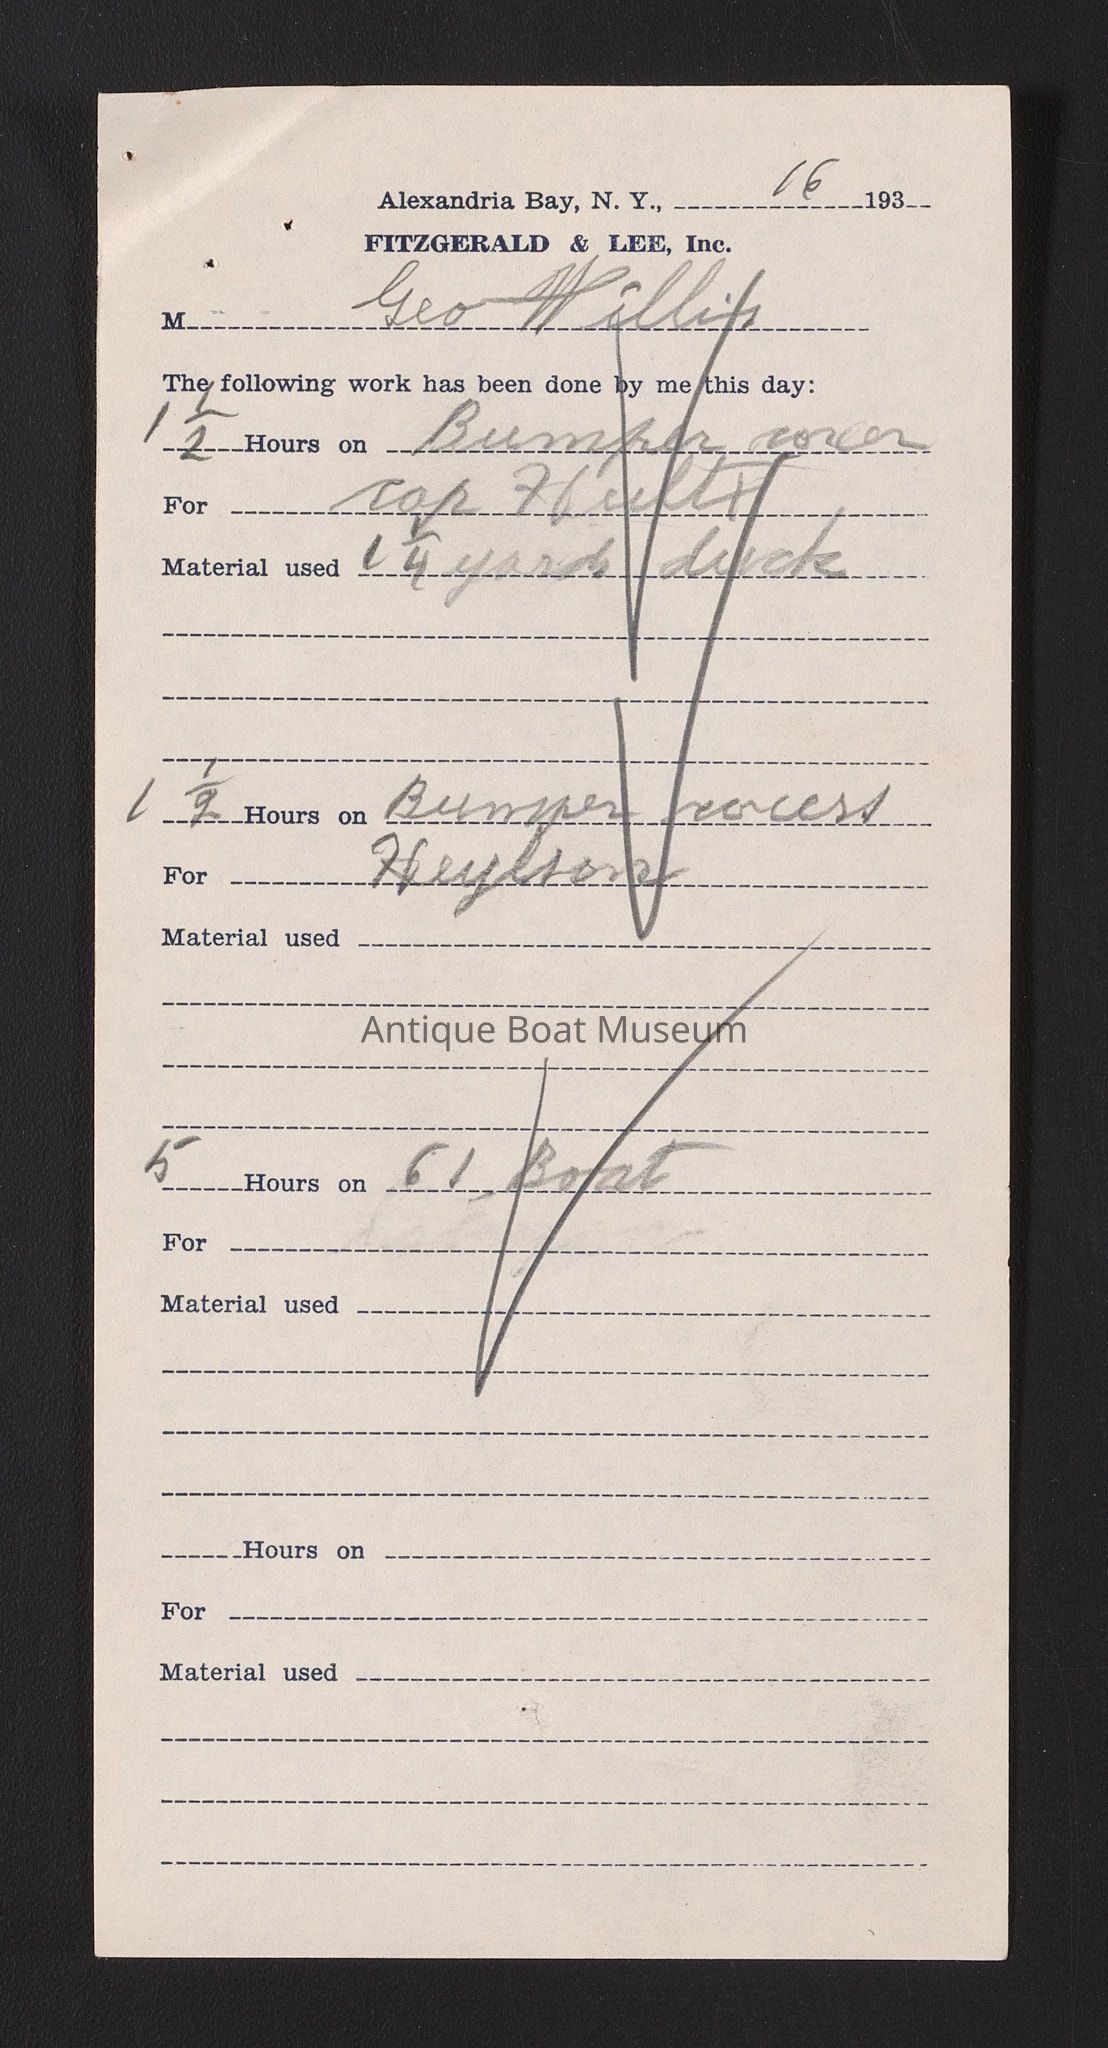 Alexandria Bay, N. Y., 16 193
FITZGERALD & LEE, Inc.
M Geo Willis
The following work has been done by me this day:
1 1/2 Hours on Bumper cover
For cap
Material used 1 1/4 yards duck
1 1/2 Hours on Bumper covers
For
Material used
Antique Boat Museum
5 Hours on 61 Boat
For
Material used
Hours on
For
Material used